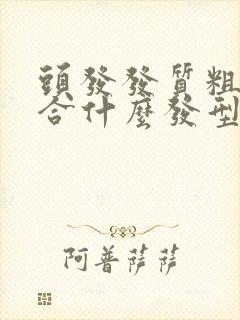 頭發發質粗
合什麼發型
阿普薩薩